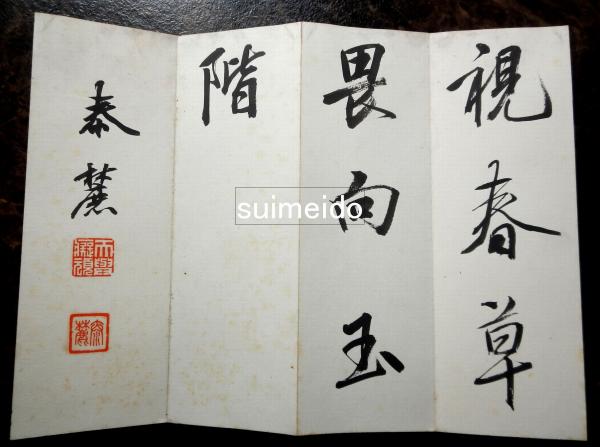 視春草
畏向玉
階
泰麓
泰麓
suimeido